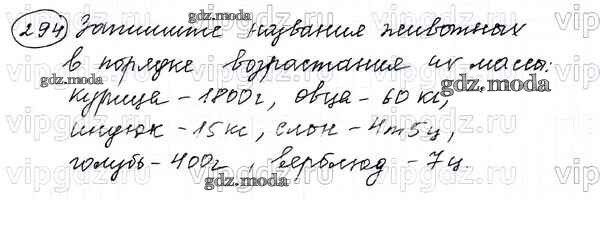 294 Запишите название животных
в порядке возрастания их массы:
курица - 1800г, овца - 60 кг,
индюк - 15кг, слон - 4т5ц,
голубь - 400г, верблюд - 7ц.
gdz.moda
gdz.moda
gdz.moda
gdz.moda
gdz.moda
vipgdz.com